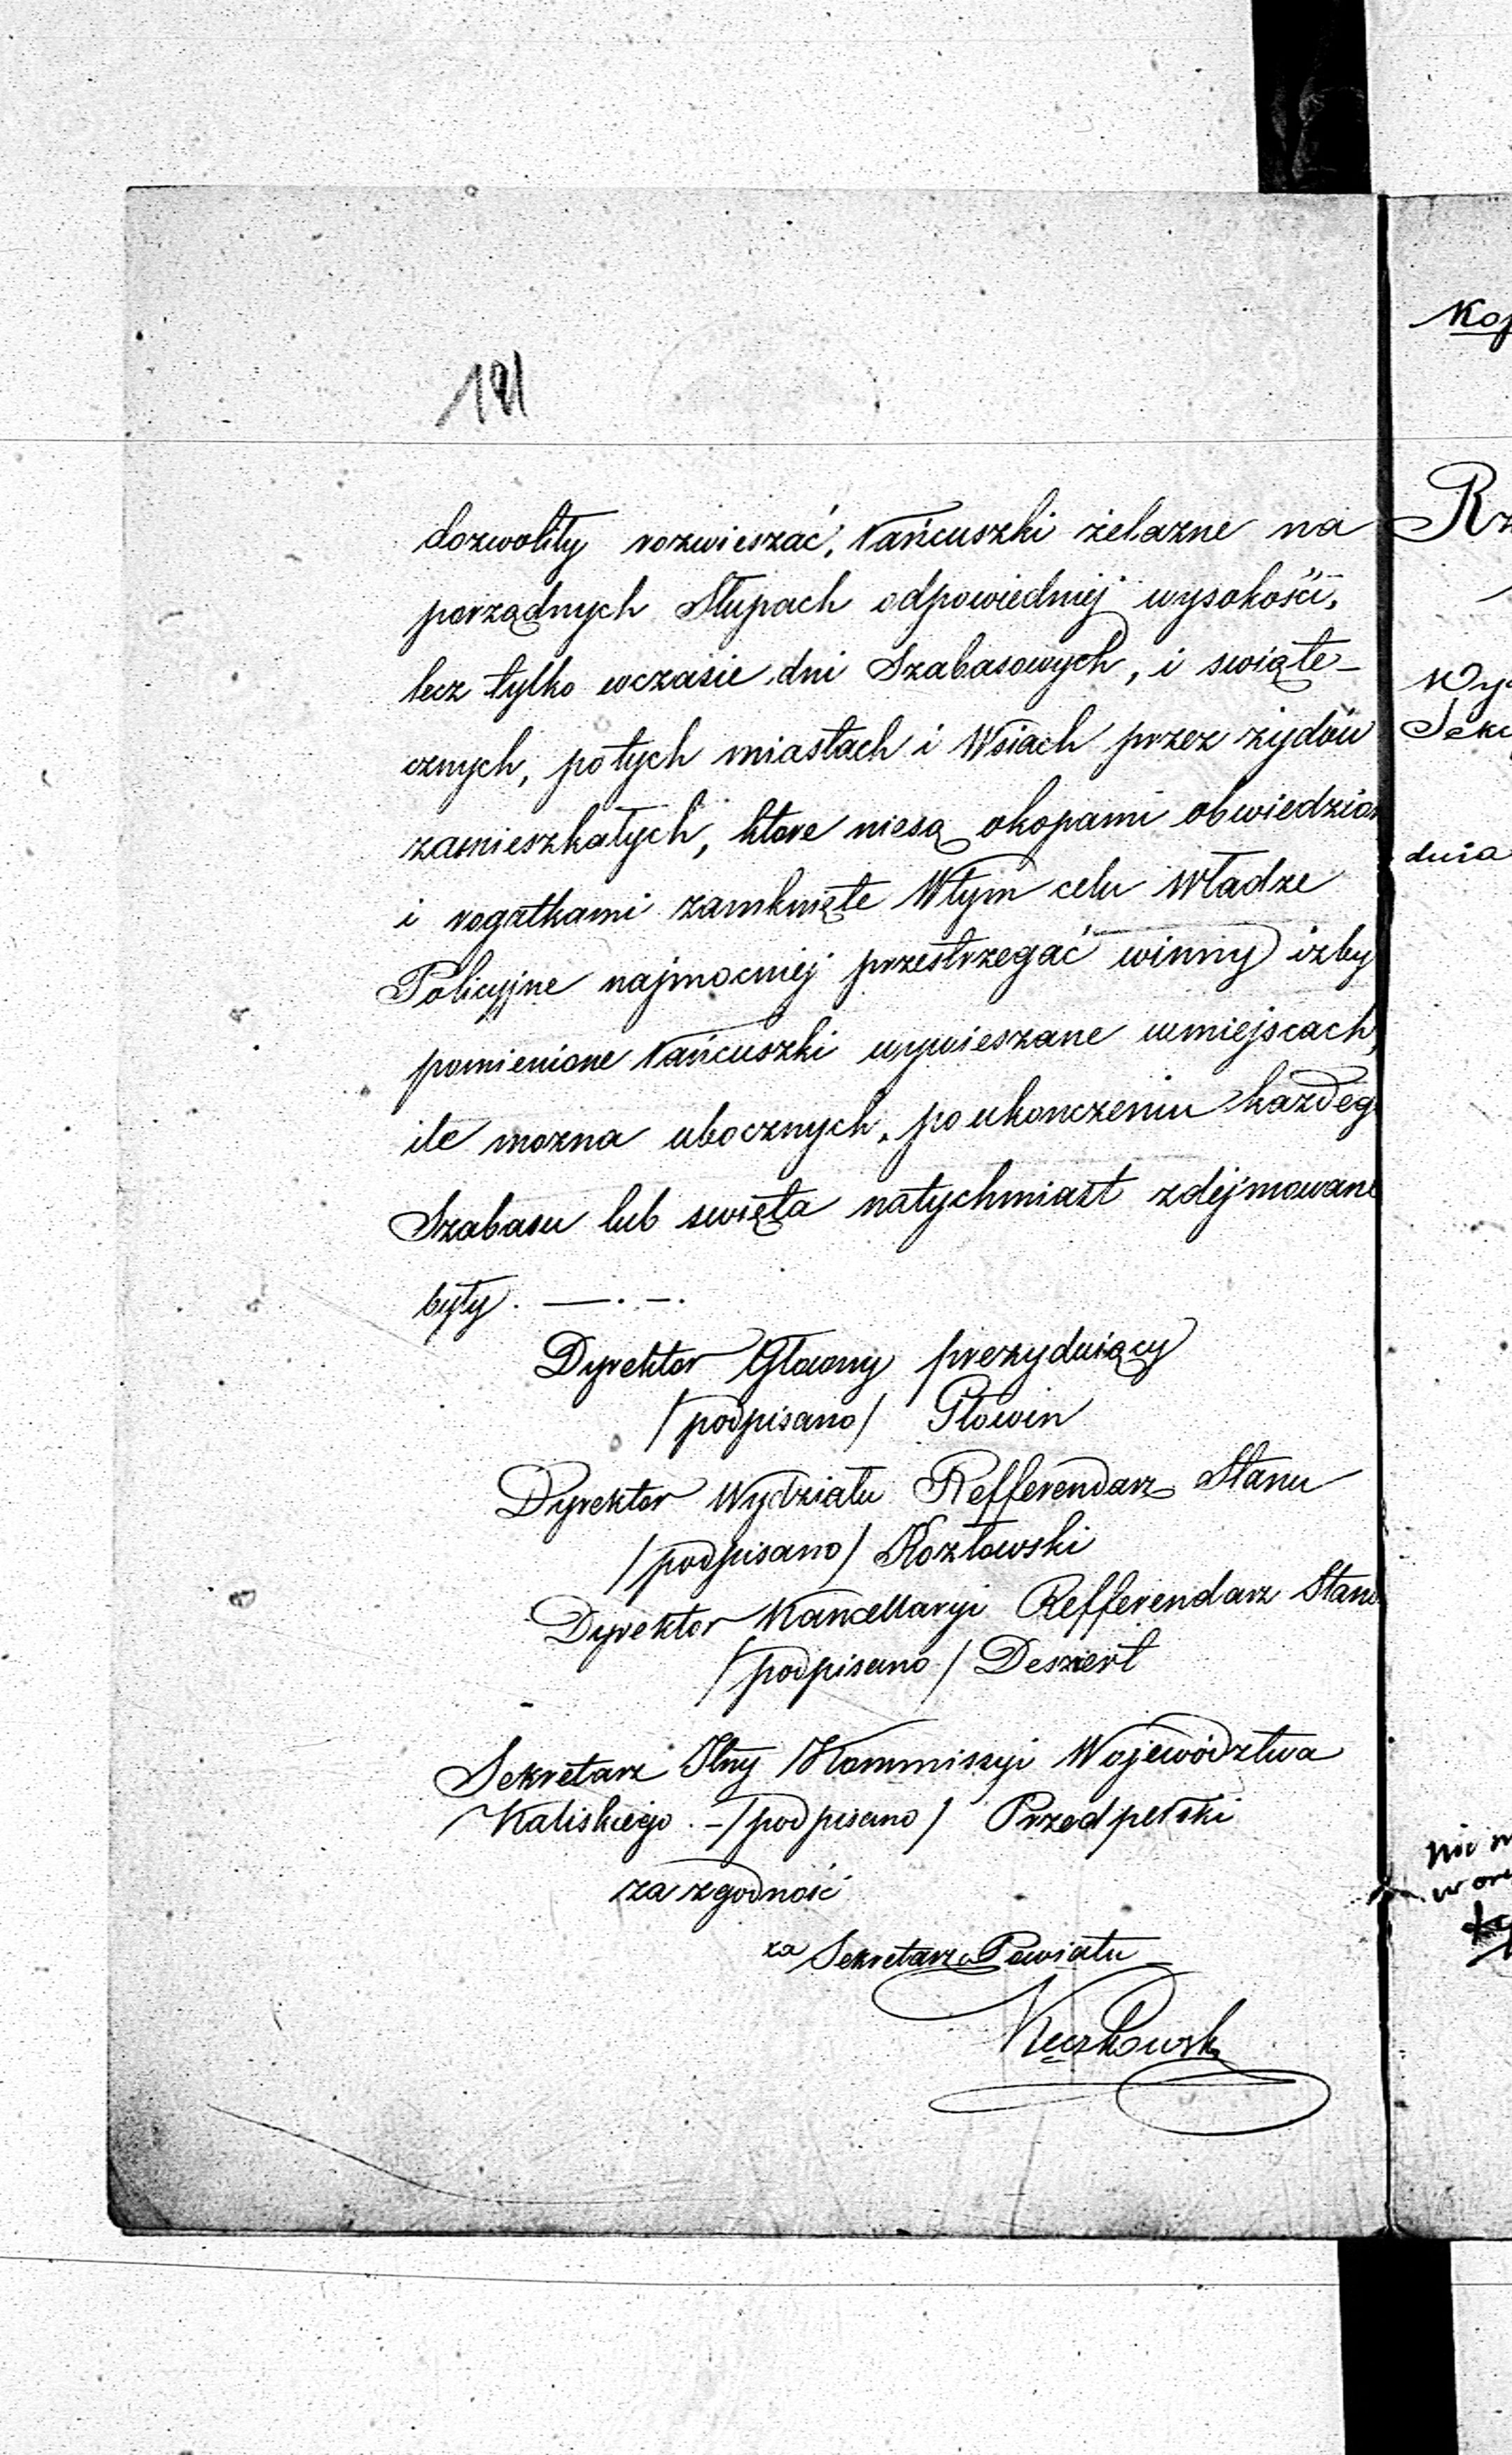 181
dozwoliły rozwieszać, Łańcuszki żelazne na
porządnych Słupach odpowiedniej wysokości,
lecz tylko wczasie dni Szabasowych, i swiąte-
cznych, potych miastach i Wsiach przez żydów
zamieszkałych, ktore niesą okopami obwiedzion
i rogatkami zamknięte Wtym celu Władze
Policyjne najmocniej przestrzegać winny izby
pomienione Łańcuszki wywieszane wmiejscach,
ile mozna ubocznych, po ukonczeniu każdeg
Szabasu lub swięta natychmiast zdejmowane
były. —. –.
Dyrektor Głowny prezyduiący
/podpisano/ Głowin
Dyrektor Wydziału Refferendarz Stanu
/podpisano/ Kozłowski
Dyrektor Kancellaryi Refferendarz Stanu
/podpisano/ Deszert
Sekretarz Jlny Kommissyi Województwa
Kaliskiego. –/podpisano/ Przedpełski
za zgodność
za Sekretarza Powiatu
Kop
Rz
Wy
Sek
dnia
nie